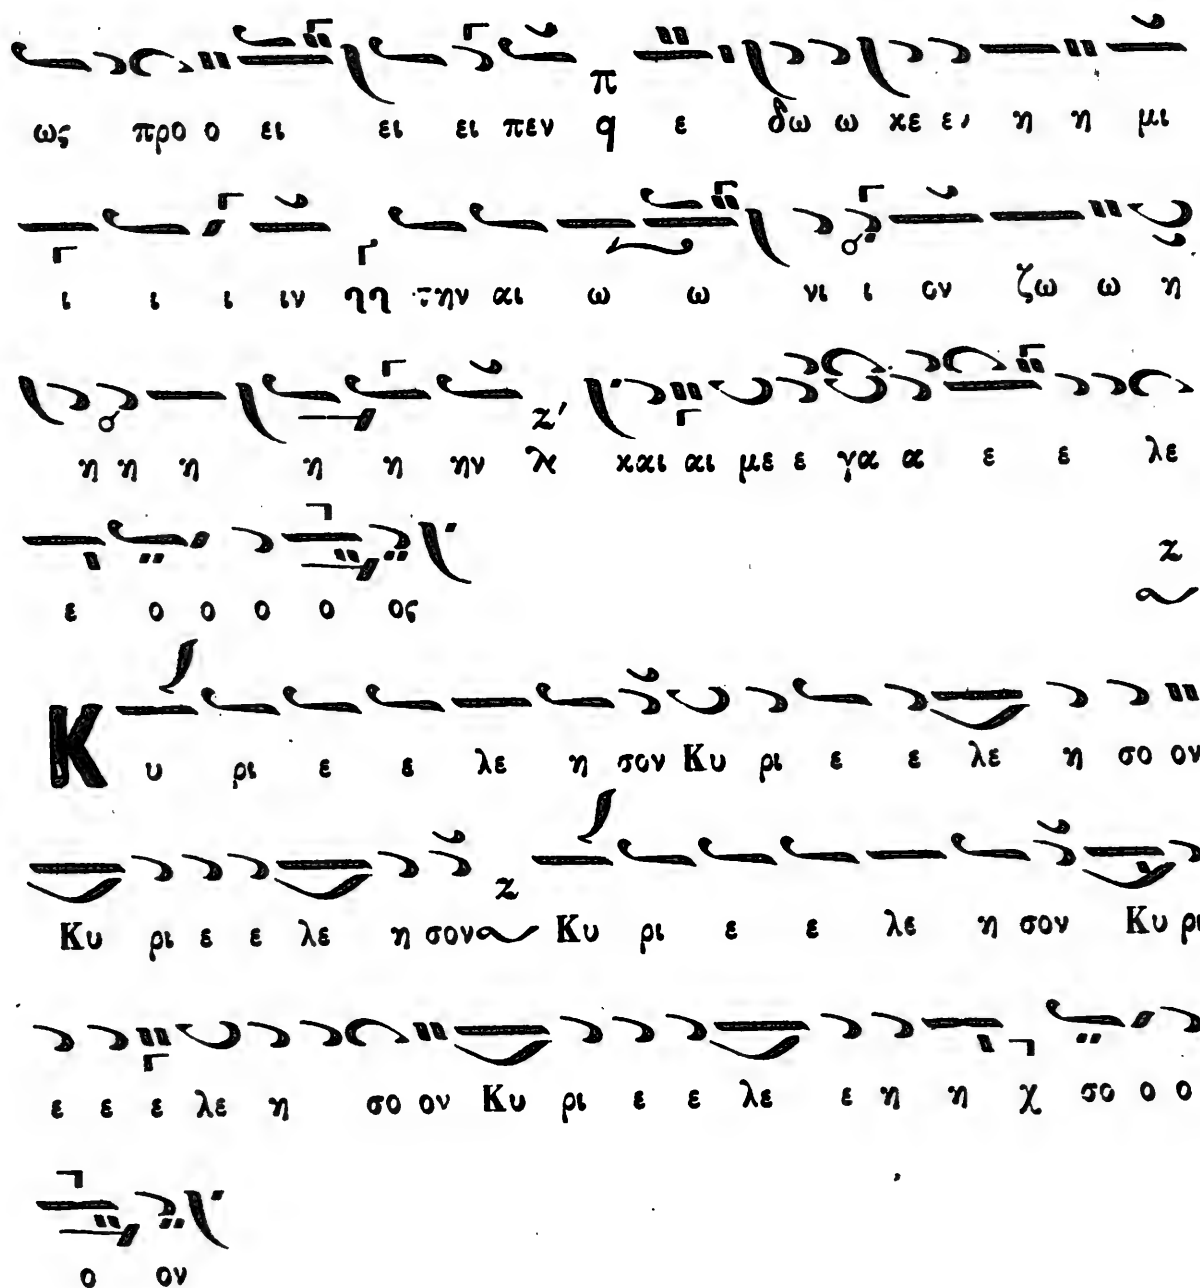 π
ως προ ο ει ει ει πεν q ε δω ω κε ει η η μι
ι ι ι ιν ηη την αι ω ω νι ι ον ζω ω η
z'
η η η η η ην λ και αι με ε γα α ε ε λε
z
ε ο ο ο ο ος
Κ υ ρι ε ε λε η σον Κυ ρι ε ε λε η σο ον
z
Κυ ρι ε ε λε η σον Κυ ρι ε ε λε η σον Κυ ρι
ε ε ε λε η σο ον Κυ ρι ε ε λε ε η η χ σο ο ο
ο ον